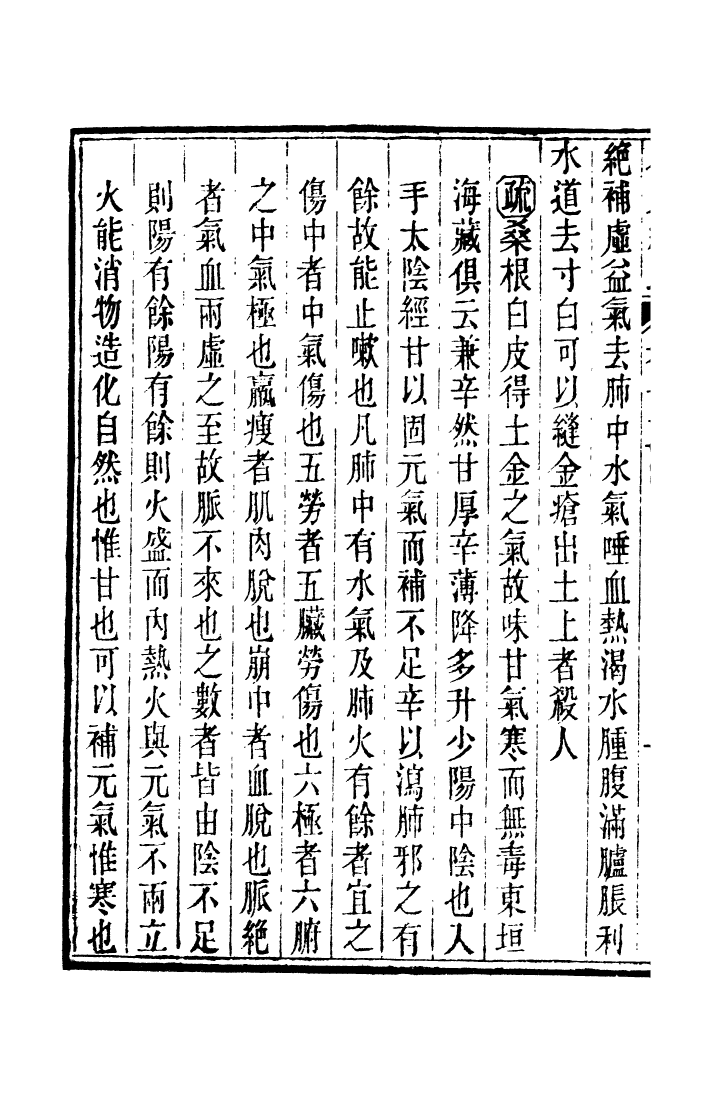 絶補虛益氣去肺中水氣唾血熱渴水腫腹滿臚脹利
水道去寸白可以縫金瘡出土上者殺人
疏桑根白皮得土金之氣故味甘氣寒而無毒東垣
海藏俱云兼辛然甘厚辛薄降多升少陽中陰也入
手太陰經甘以固元氣而補不足辛以瀉肺邪之有
餘故能止嗽也凡肺中有水氣及肺火有餘者宜之
傷中者中氣傷也五勞者五臟勞傷也六極者六腑
之中氣極也羸瘦者肌肉脫也崩中者血脫也脈絶
者氣血兩虛之至故脈不來也之數者皆由陰不足
則陽有餘陽有餘則火盛而內熱火與元氣不兩立
火能消物造化自然也惟甘也可以補元氣惟寒也